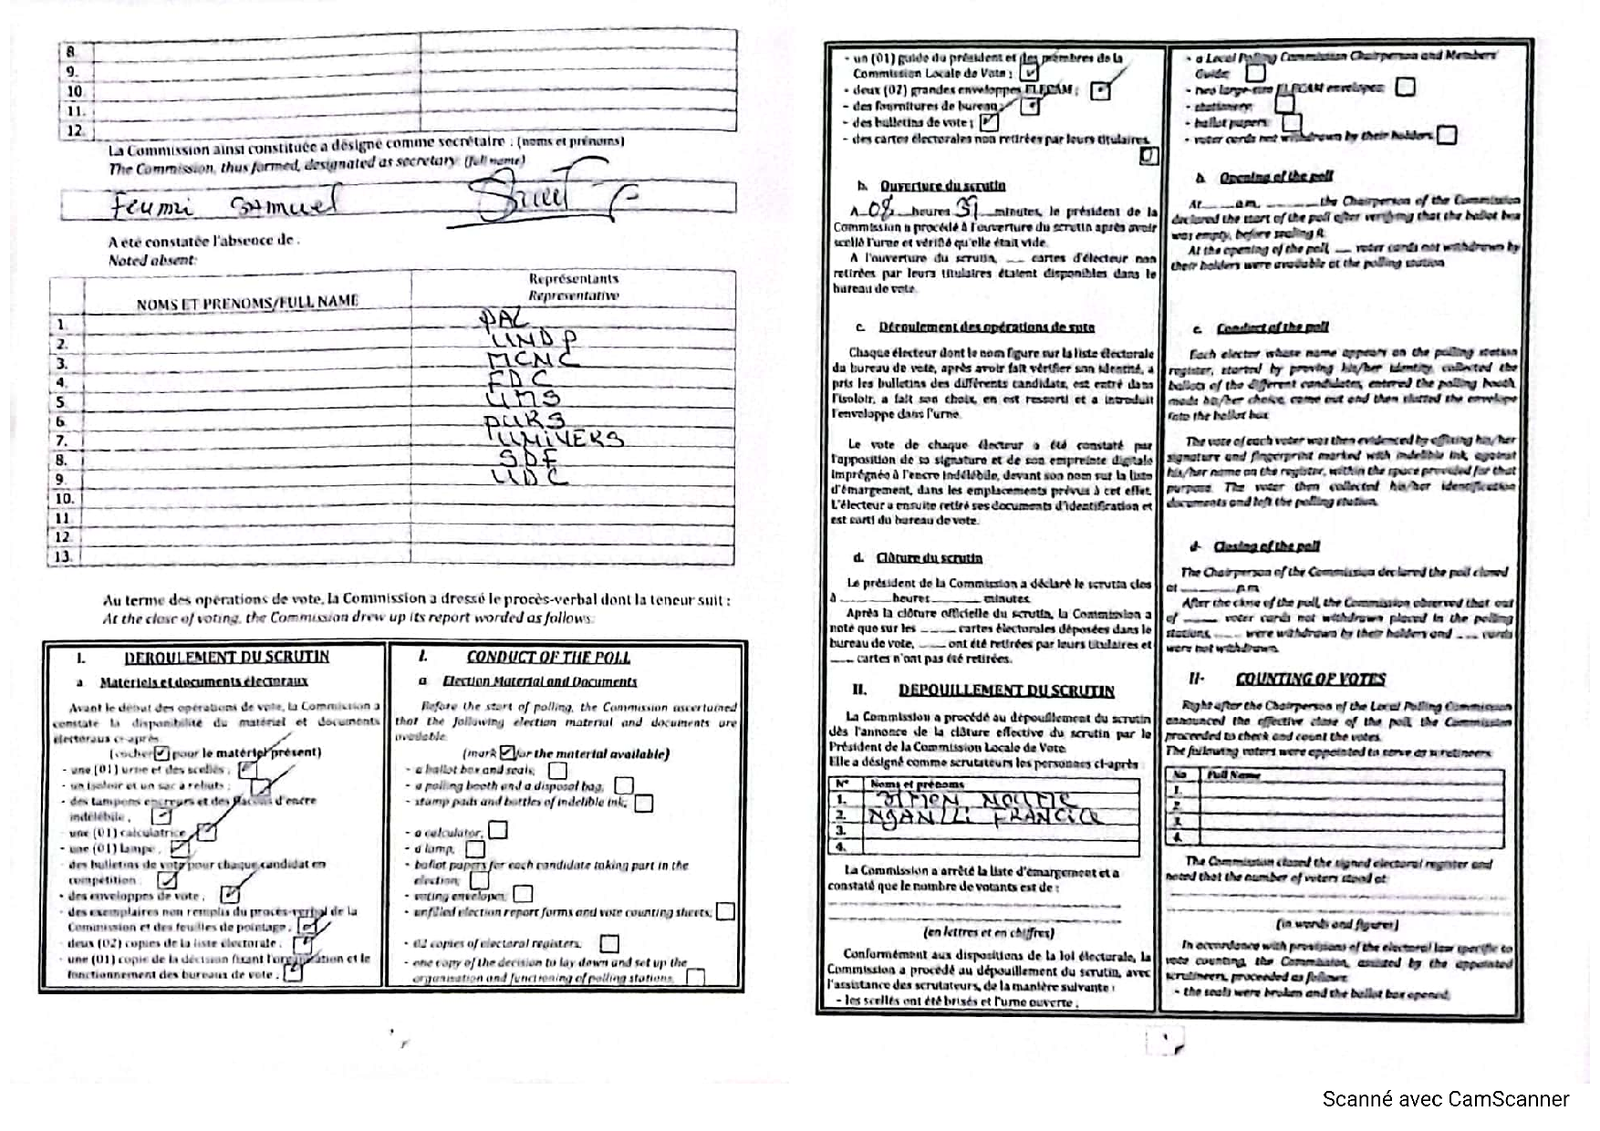 8.
9.
10.
11.
12.
La Commission ainsi constituée a désigné comme secrétaire : (noms et prénoms)
The Commission, thus formed, designated as secretary: (full name)
Feumzi Samuel
A été constatée l'absence de :
Noted absent:
NOMS ET PRENOMS/FULL NAME
Représentants
Representative
1. PAL
2. UNDP
3. MCNC
4. FDC
5. UMS
6. PURS
7. UNIVERS
8. SDF
9. UDC
10.
11.
12.
13.
Au terme des opérations de vote, la Commission a dressé le procès-verbal dont la teneur suit :
At the close of voting, the Commission drew up its report worded as follows:
I. DEROULEMENT DU SCRUTIN
a. Matériels et documents électoraux
Avant le début des opérations de vote, la Commission a
constaté la disponibilité du matériel et documents
électoraux ci-après
(cocher pour le matériel présent)
- une (01) urne et des scellés ;
- un isoloir et un sac à rebuts ;
- des tampons encreurs et des flacons d'encre
indélébile ;
- une (01) calculatrice
- une (01) lampe
- des bulletins de vote pour chaque candidat en
compétition ;
- des enveloppes de vote ;
- des exemplaires non remplis du procès-verbal de la
Commission et des feuilles de pointage ;
- deux (02) copies de la liste électorale ;
- une (01) copie de la décision fixant l'organisation et le
fonctionnement des bureaux de vote ;
I. CONDUCT OF THE POLL
a Election Material and Documents
Before the start of polling, the Commission ascertained
that the following election material and documents are
available.
(mark for the material available)
- a ballot box and seals;
- a polling booth and a disposal bag;
- stamp pads and bottles of indelible ink;
- a calculator;
- a lamp;
- ballot papers for each candidate taking part in the
election;
- voting envelope;
- unfilled election report forms and vote counting sheets;
- 02 copies of electoral registers;
- one copy of the decision to lay down and set up the
organisation and functioning of polling stations;
- un (01) guide du président et des membres de la
Commission Locale de Vote ;
- deux (02) grandes enveloppes ELECAM ;
- des fournitures de bureau ;
- des bulletins de vote ;
- des cartes électorales non retirées par leurs titulaires.
b. Ouverture du scrutin
A 08 heures 39 minutes, le président de la
Commission a procédé à l'ouverture du scrutin après avoir
scellé l'urne et vérifié qu'elle était vide.
A l'ouverture du scrutin, ___ cartes d'électeur non
retirées par leurs titulaires étaient disponibles dans le
bureau de vote.
c. Déroulement des opérations de vote
Chaque électeur dont le nom figure sur la liste électorale
du bureau de vote, après avoir fait vérifier son identité, a
pris les bulletins des différents candidats, est entré dans
l'isoloir, a fait son choix, en est ressorti et a introduit
l'enveloppe dans l'urne.
Le vote de chaque électeur a été constaté par
l'apposition de sa signature et de son empreinte digitale
imprégnée à l'encre indélébile, devant son nom sur la liste
d'émargement, dans les emplacements prévus à cet effet.
L'électeur a ensuite retiré ses documents d'identification et
est sorti du bureau de vote.
d. Clôture du scrutin
Le président de la Commission a déclaré le scrutin clos
à ______ heures ______ minutes.
Après la clôture officielle du scrutin, la Commission a
noté que sur les _____ cartes électorales déposées dans le
bureau de vote, ____ ont été retirées par leurs titulaires et
____ cartes n'ont pas été retirées.
II. DEPOUILLEMENT DU SCRUTIN
La Commission a procédé au dépouillement du scrutin
dès l'annonce de la clôture effective du scrutin par le
Président de la Commission Locale de Vote.
Elle a désigné comme scrutateurs les personnes ci-après :
N° Noms et prénoms
1.
2.
3.
4.
La Commission a arrêté la liste d'émargement et a
constaté que le nombre de votants est de :
(en lettres et en chiffres)
Conformément aux dispositions de la loi électorale, la
Commission a procédé au dépouillement du scrutin, avec
l'assistance des scrutateurs, de la manière suivante :
- les scellés ont été brisés et l'urne ouverte ;
- a Local Polling Commission Chairperson and Members'
Guide;
- two large-size ELECAM envelopes;
- stationery;
- ballot papers;
- voter cards not withdrawn by their holders.
b. Opening of the poll
At ____ a.m, ______ the Chairperson of the Commission
declared the start of the poll after verifying that the ballot box
was empty, before sealing it.
At the opening of the poll, ___ voter cards not withdrawn by
their holders were available at the polling station
c. Conduct of the poll
Each elector whose name appears on the polling station
register, started by proving his/her identity, collected the
ballots of the different candidates, entered the polling booth,
made his/her choice, came out and then slotted the envelope
into the ballot box.
The vote of each voter was then evidenced by affixing his/her
signature and fingerprint marked with indelible ink, against
his/her name on the register, within the space provided for that
purpose. The voter then collected his/her identification
documents and left the polling station.
d- Closing of the poll
The Chairperson of the Commission declared the poll closed
at ______ p.m
After the close of the poll, the Commission observed that out
of _____ voter cards not withdrawn placed in the polling
stations, ____ were withdrawn by their holders and ____ cards
were not withdrawn.
II- COUNTING OF VOTES
Right after the Chairperson of the Local Polling Commission
announced the effective close of the poll, the Commission
proceeded to check and count the votes.
The following voters were appointed to serve as scrutineers:
No Full Name
1.
2.
3.
4.
The Commission closed the signed electoral register and
noted that the number of voters stood at:
(in words and figures)
In accordance with provisions of the electoral law specific to
vote counting, the Commission, assisted by the appointed
scrutineers, proceeded as follows:
- the seals were broken and the ballot box opened;
Scanné avec CamScanner